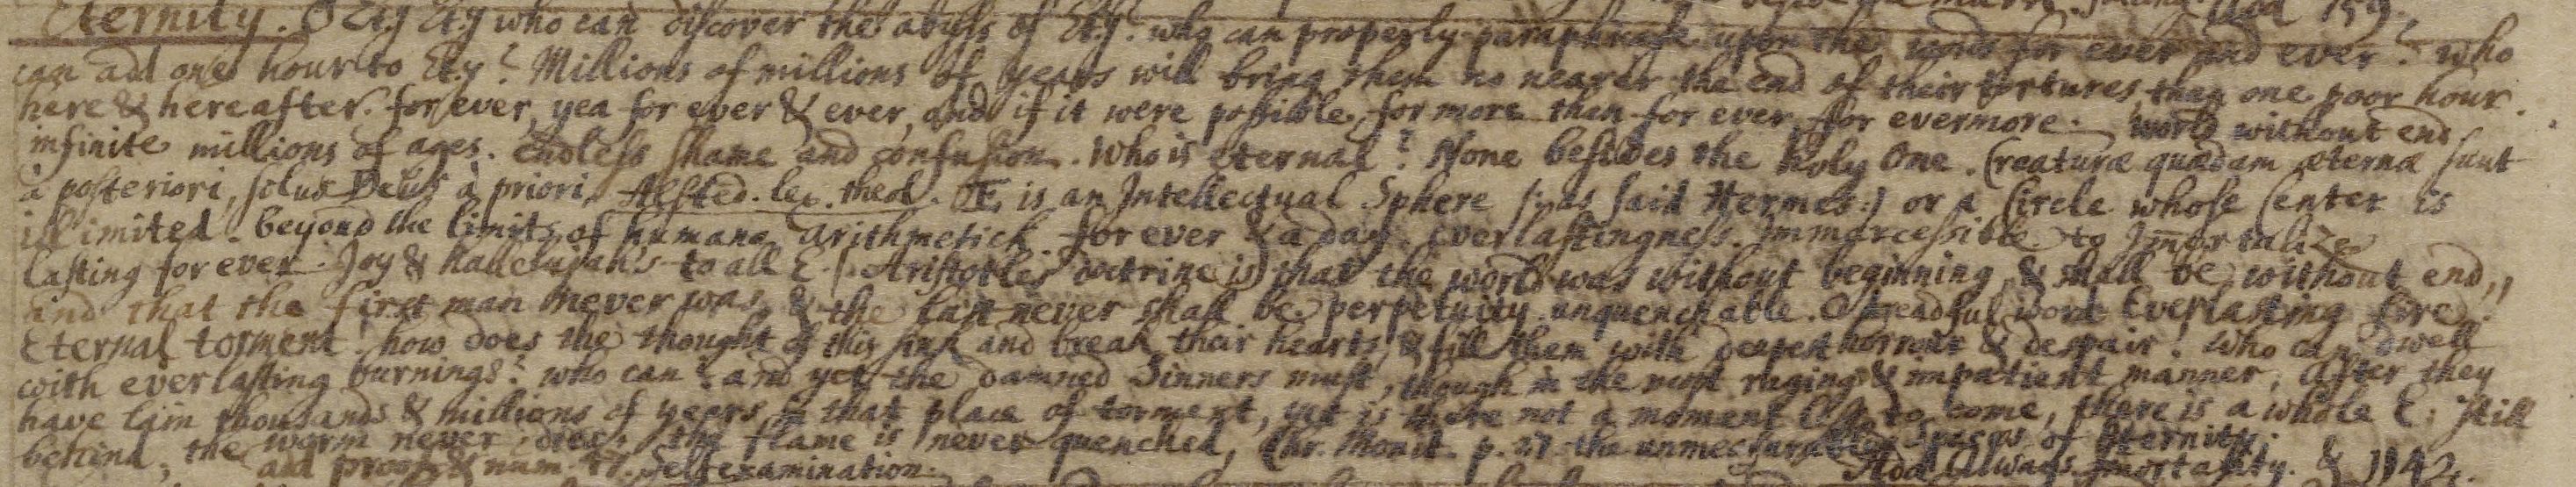 Eternity. O Ety Ety who can discover the abyss of Ety. who can properly paraphrase upon the words for ever and ever? who
can add one hour to Ety? Millions of millions of years will bring them no nearer the end of their tortures, than one poor hour.
here & hereafter. for ever, yea for ever & ever, and if it were possible, for more than for ever, for evermore. world without end
infinite millions of ages. endless shame and confusion. Who is eternal? None besides the holy One. Creaturæ quædam æternæ sunt
à posteriori, solus Deus à priori. Alsted. lex. theol. E. is an Intellectual Sphere (:as said Hermes:) or a Circle whose Center is
illimited. beyond the limits of humane arithmetick. for ever & a day. Everlastingness. Immarcessible. to Imortalize
lasting for ever. Joy & hallelujah's to all E. Aristotles doctrine is that the world was without beginning, & shall be without end,
and that the first man never was, & the last never shall be. perpetuity. unquenchable. O dreadful word Everlasting fire.
Eternal torment! how does the thought of this sink and break their hearts, & fill them with deepest horrour & despair! Who can dwell
with everlasting burnings? who can? and yet the damned Sinners must, though in the most raging & impatient manner, after they
have lain thousands & millions of years in that place of torment, yet is there not a moment less to come, there is a whole E. still
behind, the worm never dies, the flame is never quenched, Chr. Monit. p. 27. the unmeasurable spaces of Eternity.
add proof & num. 47. Self examination. Add Always. Imortality. & 1142.